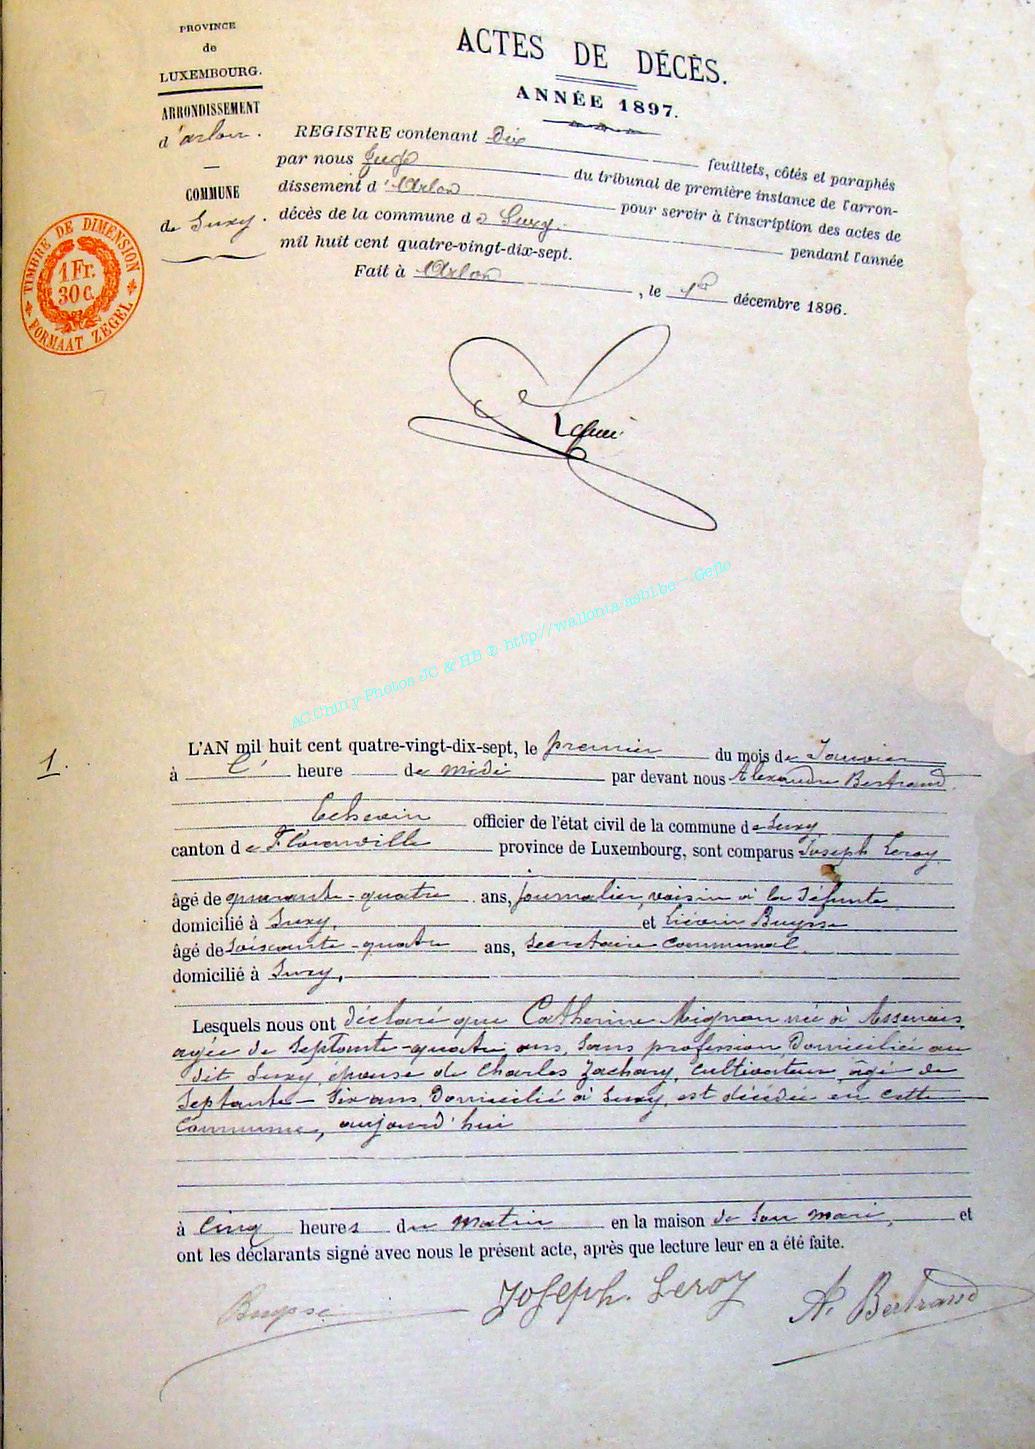 PROVINCE
de
LUXEMBOURG.
ARRONDISSEMENT
d'arlon.
COMMUNE
de Suxy.
TIMBRE DE DIMENSION
1 Fr.
30 c.
FORMAAT ZEGEL
ACTES DE DÉCÈS.
ANNÉE 1897.
REGISTRE contenant Dix feuillets, côtés et paraphés
par nous Juge du tribunal de première instance de l'arron-
dissement d'Arlon pour servir à l'inscription des actes de
décès de la commune de Suxy. pendant l'année
mil huit cent quatre-vingt-dix-sept.
Fait à Arlon, le 1er décembre 1896.
AC Chiny Photos JC & HB © http://wallonia-asbl.be - Geflo
1.
L'AN mil huit cent quatre-vingt-dix-sept, le premier du mois de Janvier
à heure de midi par devant nous Alexandre Bertrand.
Echevin officier de l'état civil de la commune de Suxy,
canton de Florenville province de Luxembourg, sont comparus Joseph Leroy.
âgé de quarante-quatre ans, Journalier, voisin à la défunte
domicilié à Suxy, et Liévin Buysse
âgé de soixante-quatre ans, Secrétaire communal.
domicilié à Suxy,
Lesquels nous ont déclaré que Catherine Mignon née à Assenois,
agée de Septante-quatre ans, Sans profession, Domiciliée au
dit Suxy, épouse de Charles Zachary, Cultivateur, âgé de
Septante- ans, Domicilié à Suxy, est décédée en cette
Commune, aujourd'hui
à Cinq heures du matin en la maison de Son mari, et
ont les déclarants signé avec nous le présent acte, après que lecture leur en a été faite.
Buysse Joseph. Leroy A. Bertrand